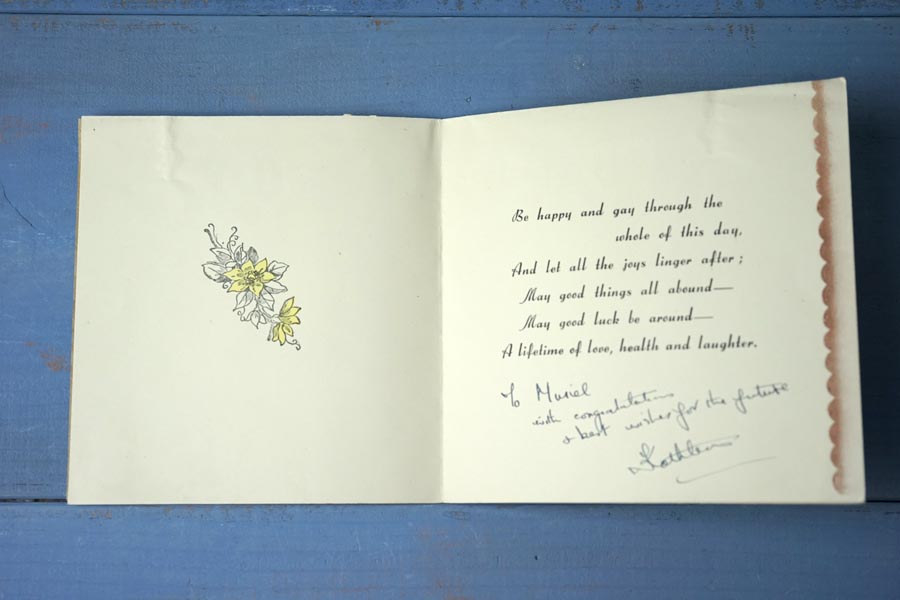 Be happy and gay through the
whole of this day,
And let all the joys linger after;
May good things all abound—
May good luck be around—
A lifetime of love, health and laughter.
To Muriel
with congratulations
& best wishes for the future
Kathleen